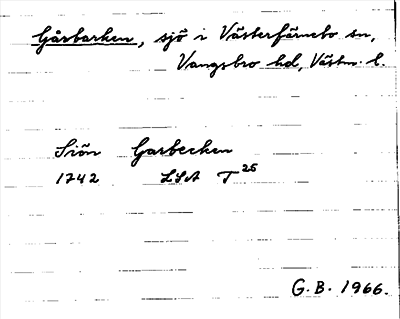 Gårbarken, sjö i Västerfärnebo sn,
Vangsbro hd, Västm. l.
Siön Garbecken
1742 LSA T 25
G.B. 1966.